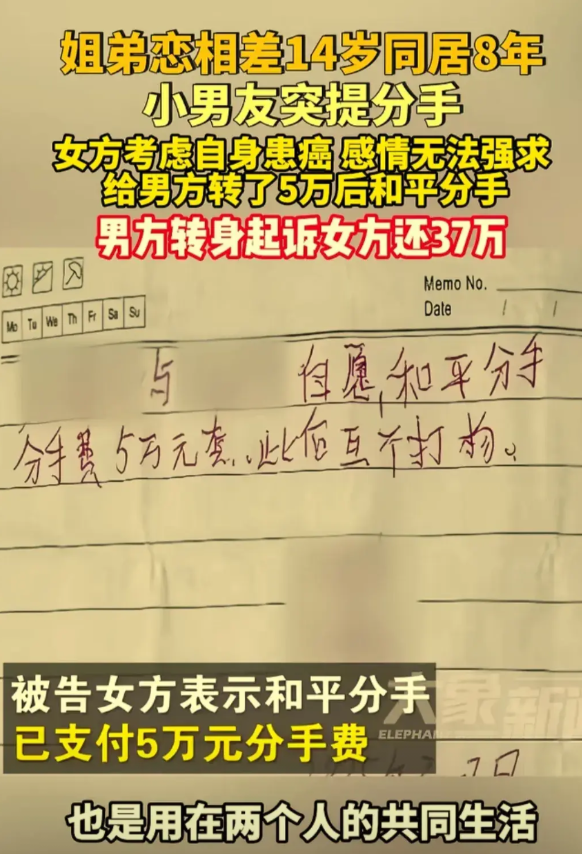 姐弟恋相差14岁同居8年
小男友突提分手
女方考虑自身患癌 感情无法强求
给男方转了5万后和平分手
男方转身起诉女方还37万
Memo No.
Date / /
Mo Tu We Th Fr Sa Su
与 自愿,和平分手
分手费5万元整.此后互不打扰。
被告女方表示和平分手
已支付5万元分手费
大象新
ELEPHAN
也是用在两个人的共同生活